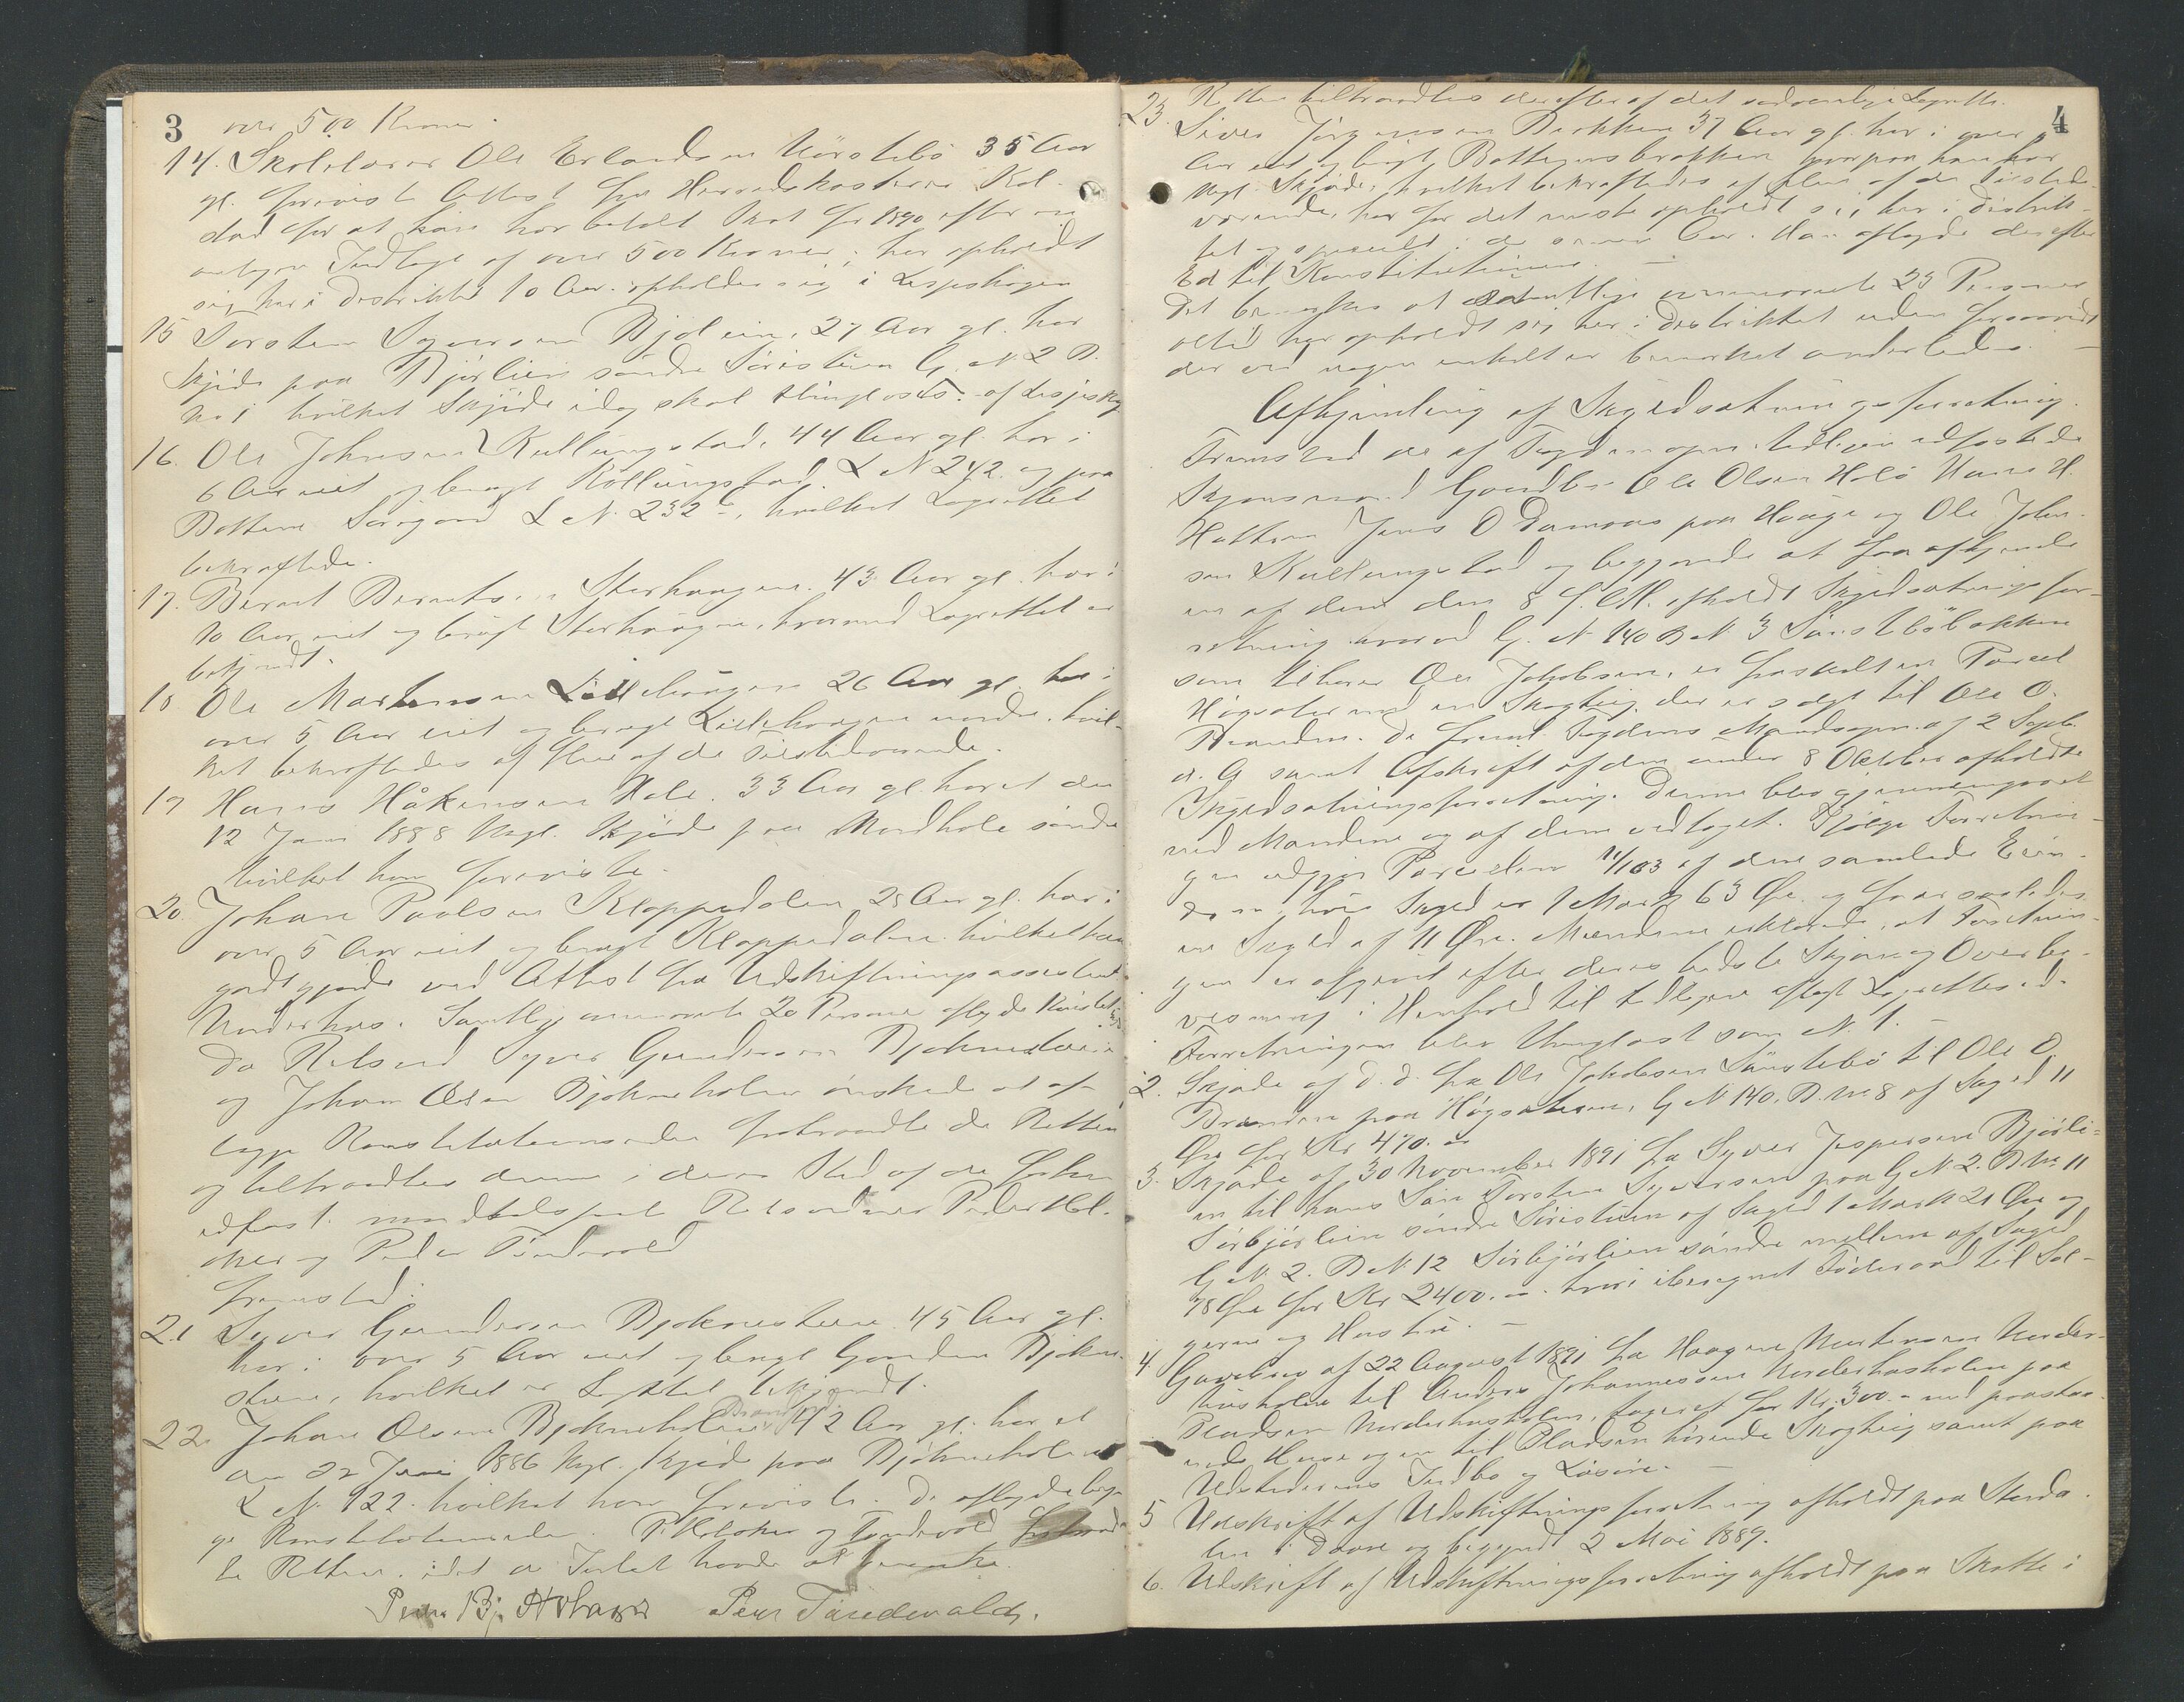 3
over 500 Kroner.
14. Skolelærer Ole Erlandsen Hörstebö 35 Aar
gl. foreviste Attest fra Herredskasserer Kol-
stad for at han har betalt Skat for 1890 efter en
antagen Indtægt af over 500 Kroner; har opholdt
sig her i Distriktet 10 Aar. opholder sig i Lesjeskogen
15 Torsten Syversen Bjölien, 27 Aar gl. har
Skjöde paa Bjørlien söndre Söristuen G. N. 2 B.
No 1 hvilket Skjöde idag skal thinglæses. af Lesjeskg
16. Ole Johnsen Kullungstad, 44 Aar gl. har i
6 Aar eiet og brugt Kollungstad L N 242 og paa
Bottem Sörigard L N. 232 c, hvilket Lagrettet
bekræftede.
17. Bernt Berntsen Storhaugen. 43 Aar gl. har i
10 Aar eiet og brugt Storhaugen, hvormed Lagrettet er
bekjendt.
18 Ole Mortensen Lillehaugen 26 Aar gl. har i
over 5 Aar eiet og brugt Lillehaugen nordre, hvil-
ket bekræftedes af flere af de Tilstedeværende.
19 Hans Håkensen Hole. 33 Aar gl har et den
12 Juni 1888 thgl. Skjöde paa Nordhole söndre
hvilket han foreviste.
20. Johan Paulsen Kloppedalen 28 Aar gl. har i
over 5 Aar eiet og brugt Kloppedalen hvilket han
godtgjorde ved Attest fra Udskiftningsassistent
Nordrehus. Samtlige ovennævnte 20 Personer aflagde Konstitu
Da Retsvid Syver Gundersen Bjoknesteen
og Johan Olsen Bjokneholen ønskede at af-
lægge Konstitutionseden fratraadte de Retten
og tiltraadtes denne i deres Sted af de
edfæst. meddelsmænd Retsvidner Peder Hol-
aker og Peder Tændevold
fremstod:
21 Syver Gundersen Bjoknesteen 45 Aar gl.
har i over 5 Aar eiet og brugt Gaarden Bjokne-
steen, hvilket er Lagrettet bekjendt.
22. Johan Olsen Bjokneholen 42 Aar gl. har et
den 22 Juni 1886 thgl. Skjöde paa Bjökneholen
L N. 122. hvilket han foreviste. De aflagde beg-
ge Konstitutionseden. P. Holaker og Tændevold fratraad-
te Retten, idet de Intet havde at bemærke.
Peder Tændevold.
4
23. Retten tiltraadtes derefter af det sædvanlige Lagrette.
Syver Jörgensen Brakken 37 Aar gl. har i over
Aar eiet og brugt Bottemsbrakken hvorpaa han har
thgl. Skjöde, hvilket bekræftedes af flere af de tilstede-
værende, har for det meste opholdt sig her i Distrik-
tet og specielt i de senere Aar. Han aflagde derefter
Ed til Konstitutionen. —
Det bemærkes at samtlige ovennævnte 23 Personer
altid har opholdt sig her i Distriktet uden forsaavidt
der ved nogen enkelt er bemærket anderledes. —
Afhjemling af Skyldsætningsforretning.
Fremstod de af Fogden opn. tidligere edfæstede
Skjønsmænd Gaardbr. Ole Olsen Holö Hans H.
Hattrem Jens O Dæmaas paa Hauge og Ole John-
sen Kullungstad og begjærede at faa afhjemle
en af dem den 8 f. M. afholdt Skyldsætningsfor-
retning hvorved G. N 140 B N 3 Sönstebölökken
som tilhører Ole Jakobsen, er fraskilt en Parcel
Høgsæter med en Skogteig, der er solgt til Ole O.
Brænden. De fremL. Fogdens Mandsopn. af 2 Septb.
d. A samt Afskrift af den under 8 Oktober afholdte
Skyldsætningsforretning. Denne blev gjennemgaaet
med Mændene og af dem vedtaget. Ifölge Forretnin-
gen udgjør Parcelen 11/163 af den samlede Eien-
dom, hvis Skyld er 1 Mark 63 Øre og faar saaledes
en Skyld af 11 Øre. Mændene erklærede, at Forretnin-
gen er afgivet efter deres bedste Skjøn og Overbe-
visning i Henhold til tidligere aflagt Lagrettesed.
Forretningen blev thinglæst som N. 1. —
2. Skjøde af d. d. fra Ole Jakobsen Sönstebö til Ole O.
Brænden paa Høgsæteren, G N 140. B. No 8 af Skyld 11
Øre for Kr 470. —
3. Skjøde af 30 November 1891 fra Syver Jespersen Björli-
en til hans Søn Torsten Syversen paa G N. 2. B No 11
Sörbjörlien søndre Söristuen af Skyld 1 Mark 21 Øre og
G N. 2. B N. 12 Sörbjörlien søndre mellem af Skyld
78 Øre for Kr 2400. — hvori iberegnet Föderaad til Sæl-
geren og Hustru. —
4. Gavebrev af 22 August 1891 fra Haagen Mortensen Norder-
husholen til Anders Johannessen Norderhusholen paa
Pladsen Norderhusholen, taxeret for Kr. 300. — med paastaa-
ende Huse og en til Pladsen hørende Skogteig samt paa
Udstederens Indbo og Løsøre. —
5 Udskrift af Udskiftningsforretning afholdt paa Storda-
len i Dovre og begyndt 2 Mai 1889.
6. Udskrift af Udskiftningsforretning afholdt paa Skotte i